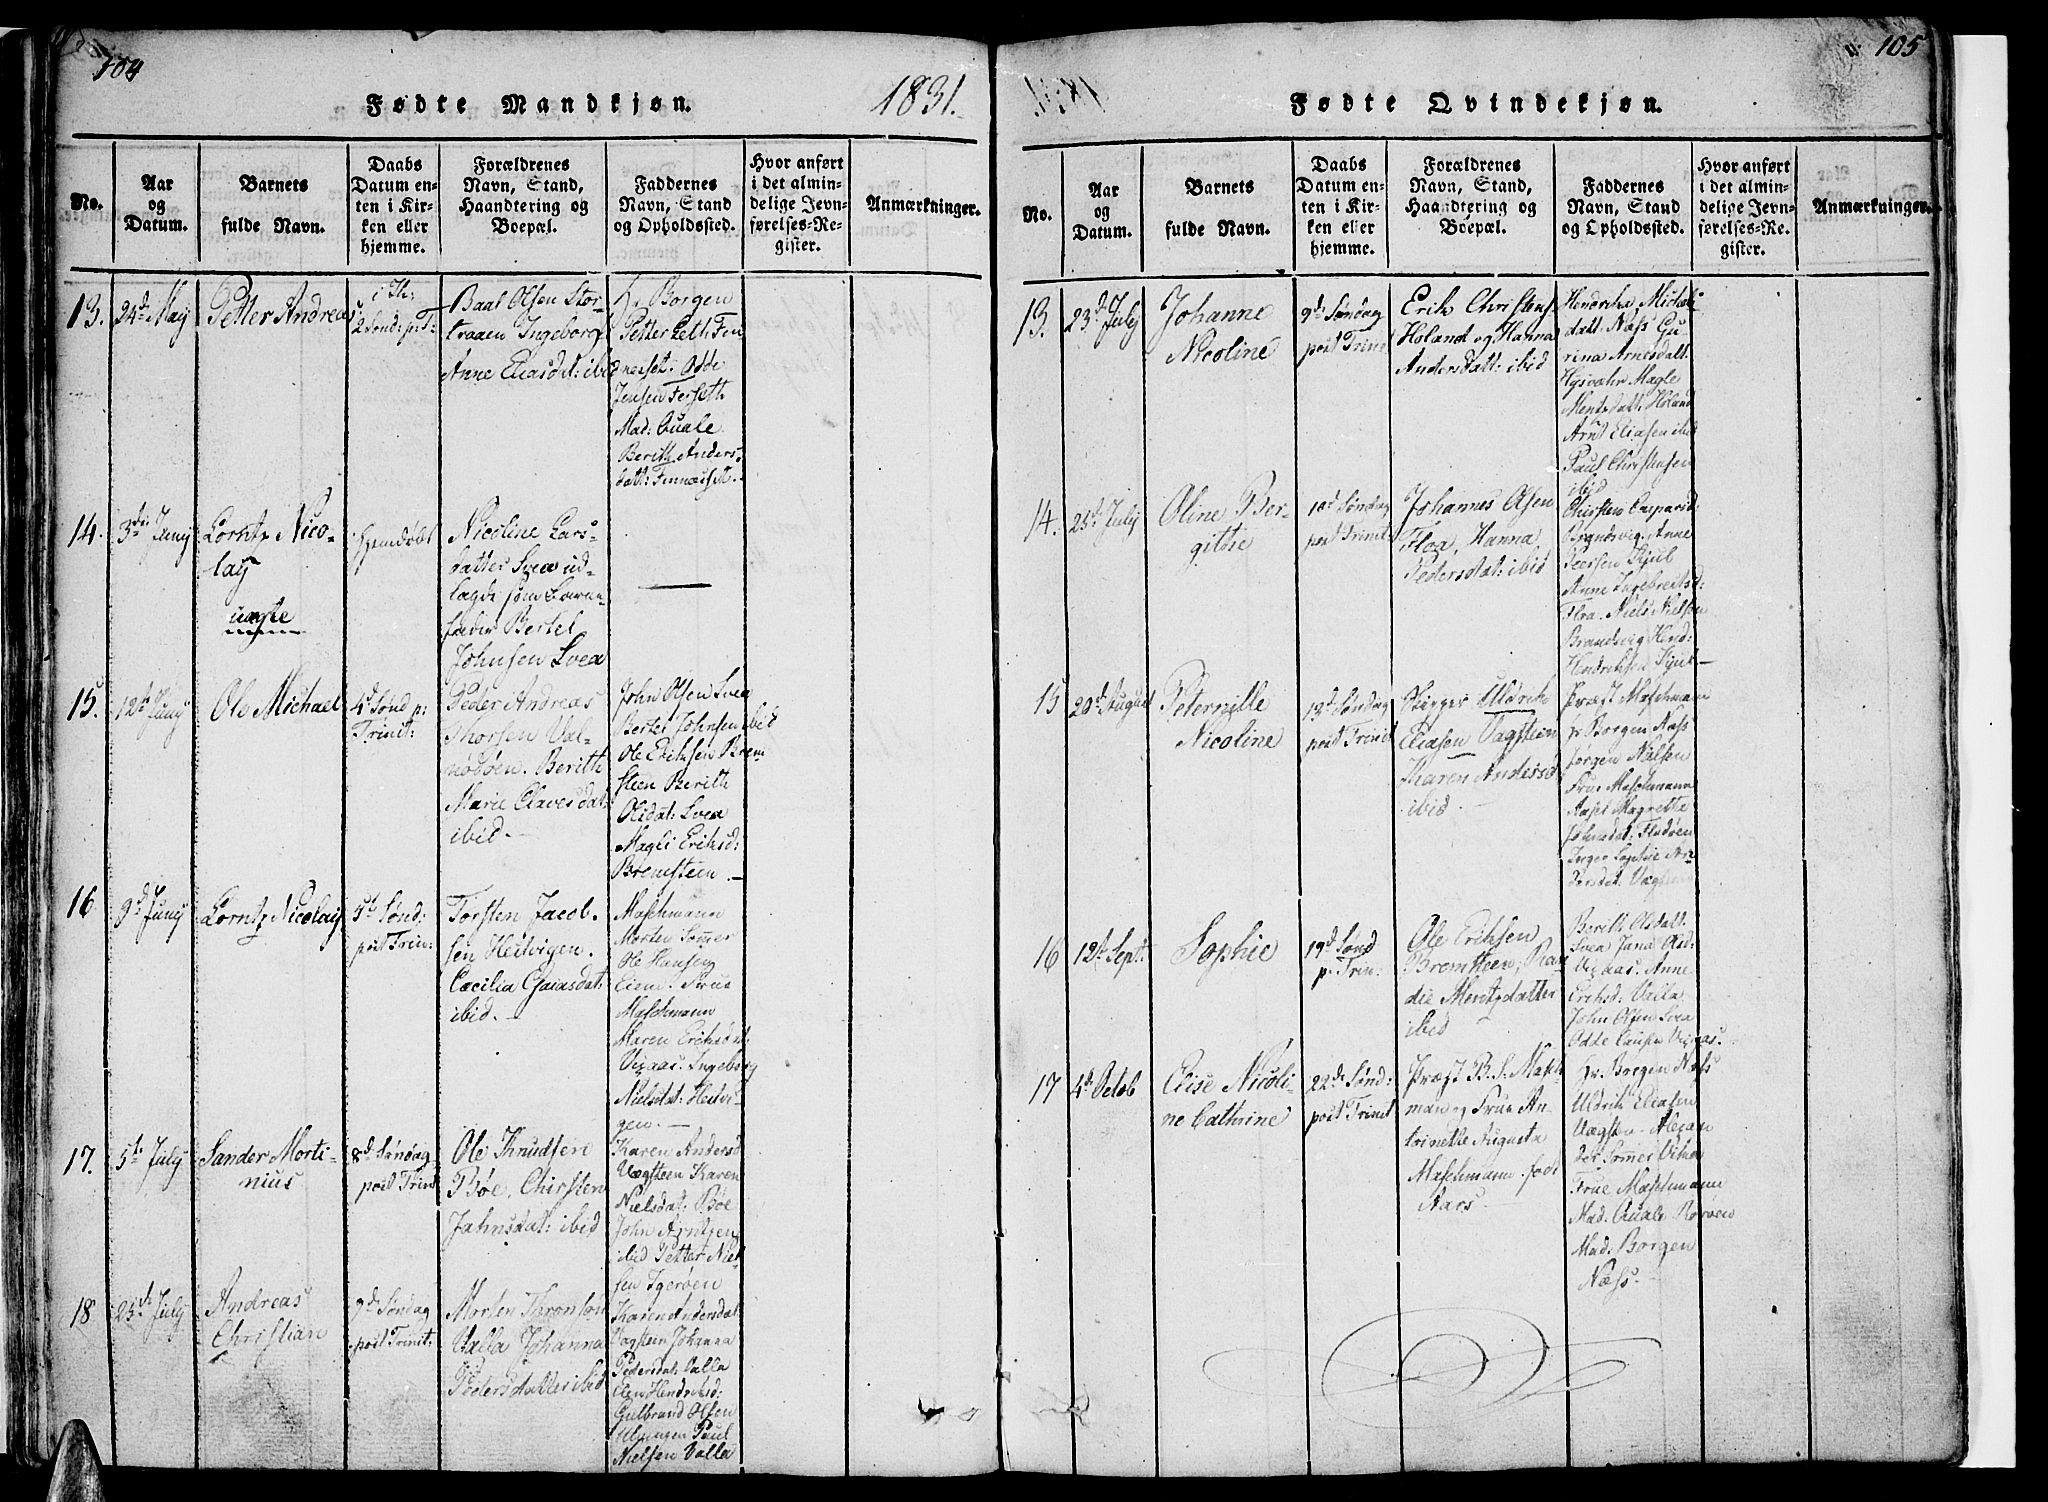 104
1831.
Fødte Mandkjøn.
No.
Aar
og
Datum.
Barnets
fulde Navn.
Daabs
Datum en-
ten i Kir-
ken eller
hjemme.
Forældrenes
Navn, Stand,
Haandtering og
Boepæl.
Faddernes
Navn, Stand
og Opholdssted.
Hvor anført
i det almin-
delige Jevn-
førelses-Re-
gister.
Anmærkninger.
13.
24de May
Petter Andreas
i Th:
2 Sønd: p: T:
Baal Olsen Stor-
traaen Ingeborg
Anne Eliasdat: ibid
Hr Borgen
Petter Leth Fin
nesset. Odde
Jensen Forseth
Mad: Quale
Berith Anders-
datt: Finnesset.
14.
3de Juny
Lorntz Nico-
lay
uægte
Hjemdøbt
Nicoline Lars-
datter Svea ud-
lagde som Barne-
fader Bertel
Johnsen Svea
15.
12te Juny
Ole Michael
4d Sønd p:
Trinit:
Peder Andreas
Thorsen Val-
nødøen. Berith
Marie Clavesdat:
ibid.
John Olsen Svea
Bertel Johnsen ibid
Ole Eriksen Brem
steen Berith
Olsdat: Svea
Magli Eriksd:
Bremstein.
16
9d Juny
Lorntz Nicolay
5te Sønd:
post Trin:
Torsten Jacob-
sen Heilvigen.
Cæcilia Gaiasdat:
ibid.
Maschmann
Morten Sommer
Ole Hansen
Eiem. Frue
Maschmann
Maren Eriksdat:
Vigaas. Ingeborg
Nielsdat: Heilvi-
gen.
17.
5te July
Sander Morti-
nius
8d Søndag
post Trinit
Ole Knudsen
Bøe, Chirsten
Jahnsdat: ibid
Karen Andersd
Vægsteen Karen
Nielsdat: Bøe
John Arntzen
ibid Petter Niel
sen Igerøen
18
25de July
Andreas
Christian
9d Søndag
post Trinit:
Morten Thronsøn
Valla Johanna
Pedersdatter ibid
Karen Andersdat:
Vagstein Johanna
Pedersdat: Valla
Elen Hendriksd:
Gulbrand Olsen
Paul
Nielsen Valla
105
Fødte Qvindekjøn.
No.
Aar
og
Datum.
Barnets
fulde Navn.
Daabs
Datum en-
ten i Kir-
ken eller
hjemme.
Forældrenes
Navn, Stand,
Haandtering og
Boepæl.
Faddernes
Navn, Stand
og Opholdssted.
Hvor anført
i det almin-
delige Jevn-
førelses-Re-
gister.
Anmærkninger.
13.
23d July
Johanne
Nicoline
9d Søndag
post Trinit
Erik Christens
Holand og Hanna
Andersdatt: ibid
Hendrika Michels
datt: Næss Gu-
rina Arnesdatt.
Hysvær Magle
Mentzdatt: Holand
Arnt Eliasen ibid
Paul Christensen
ibid
14.
25de July
Oline Ber-
githe
10d Søndag
post Trinit:
Johannes Olsen
Floa, Hanna
Pedersdat: ibid
Chirsten Caspersd
Brandsvig. Anne
Peersen Kjul
Anne Ingebreitsd:
Floa. Niels Nielsen
Brandsvig Hend:
Hendriksen Kjul
15
20de August
Peternille
Nicoline
13d Søndag
post Trinit
Skipper Uldrik
Eliasen Vagsteen
Karen Andersd
ibid
Præst Maschmann
Hr Borgen Næss
Jørgen Nielsen
Frue Maschmann
Magrethe
Johnsdat: Fladøen
Sophie An-
dersdat: Vægsteen
16
12te Sept:
Sophie
19d Sønd
p: Trin:
Ole Eriksen
Bremsteen, Ran-
die Mentzdatter
ibid
Berith Olsdatt:
Svea Jana Olsd:
Vigaas. Anne
Eriksd: Valla
John Olsen Svea
Odde Clausen Vigaas.
17
4de Octob
Elise Nicoli-
ne Cathrine
22de Sønd:
post Trinit
Præst B. S. Masch
man og Frue An-
trinette Augusta
Maschmann født
Aars
Hr. Borgen Næss
Uldrik Eliasen
Vægsten Alexan
der Sommer Vikna
Frue Maschmann
Mad. Quale Rørøen
Mad: Borgen
Næss.